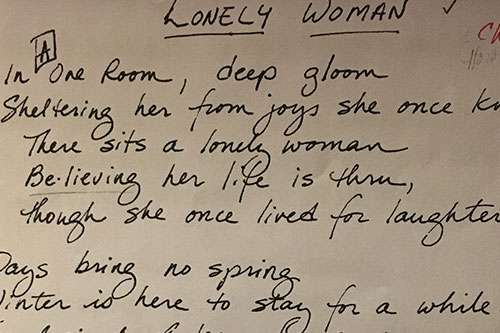 LONELY WOMAN
A
In One Room, deep gloom
Sheltering her from joys she once
There sits a lonely woman
Be-lieving her life is thru,
though she once lived for laughter
Days bring no spring
Winter is here to stay for a while